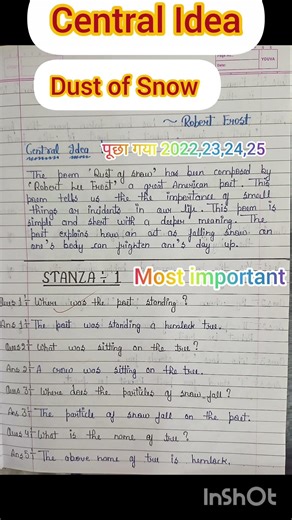 Central Idea
Dust of Snow
~ Robert Frost
Central Idea पूछा गया 2022,23,24,25
The poem 'Dust of snow' has been composed by
'Robert Lee Frost' a great American poit. This
poem tells us the the importance of small
things or incidents in our life. This poem is
simple and short with a deeper meaning. The
poit explains how an act as falling snow on
one's body can frighten one's day up.
STANZA ÷ 1 Most important
Ques 1÷ Where was the poit standing?
Ans 1÷ The poit was standing a hemlock tree.
Ques 2÷ What was sitting on the tree?
Ans 2÷ A crow was sitting on the tree.
Ques 3÷ Where does the particles of snow fall?
Ans 3÷ The particle of snow fall on the poit.
Ques 4÷ What is the name of tree?
Ans 5÷ The above name of tree is hemlock.
InShOt